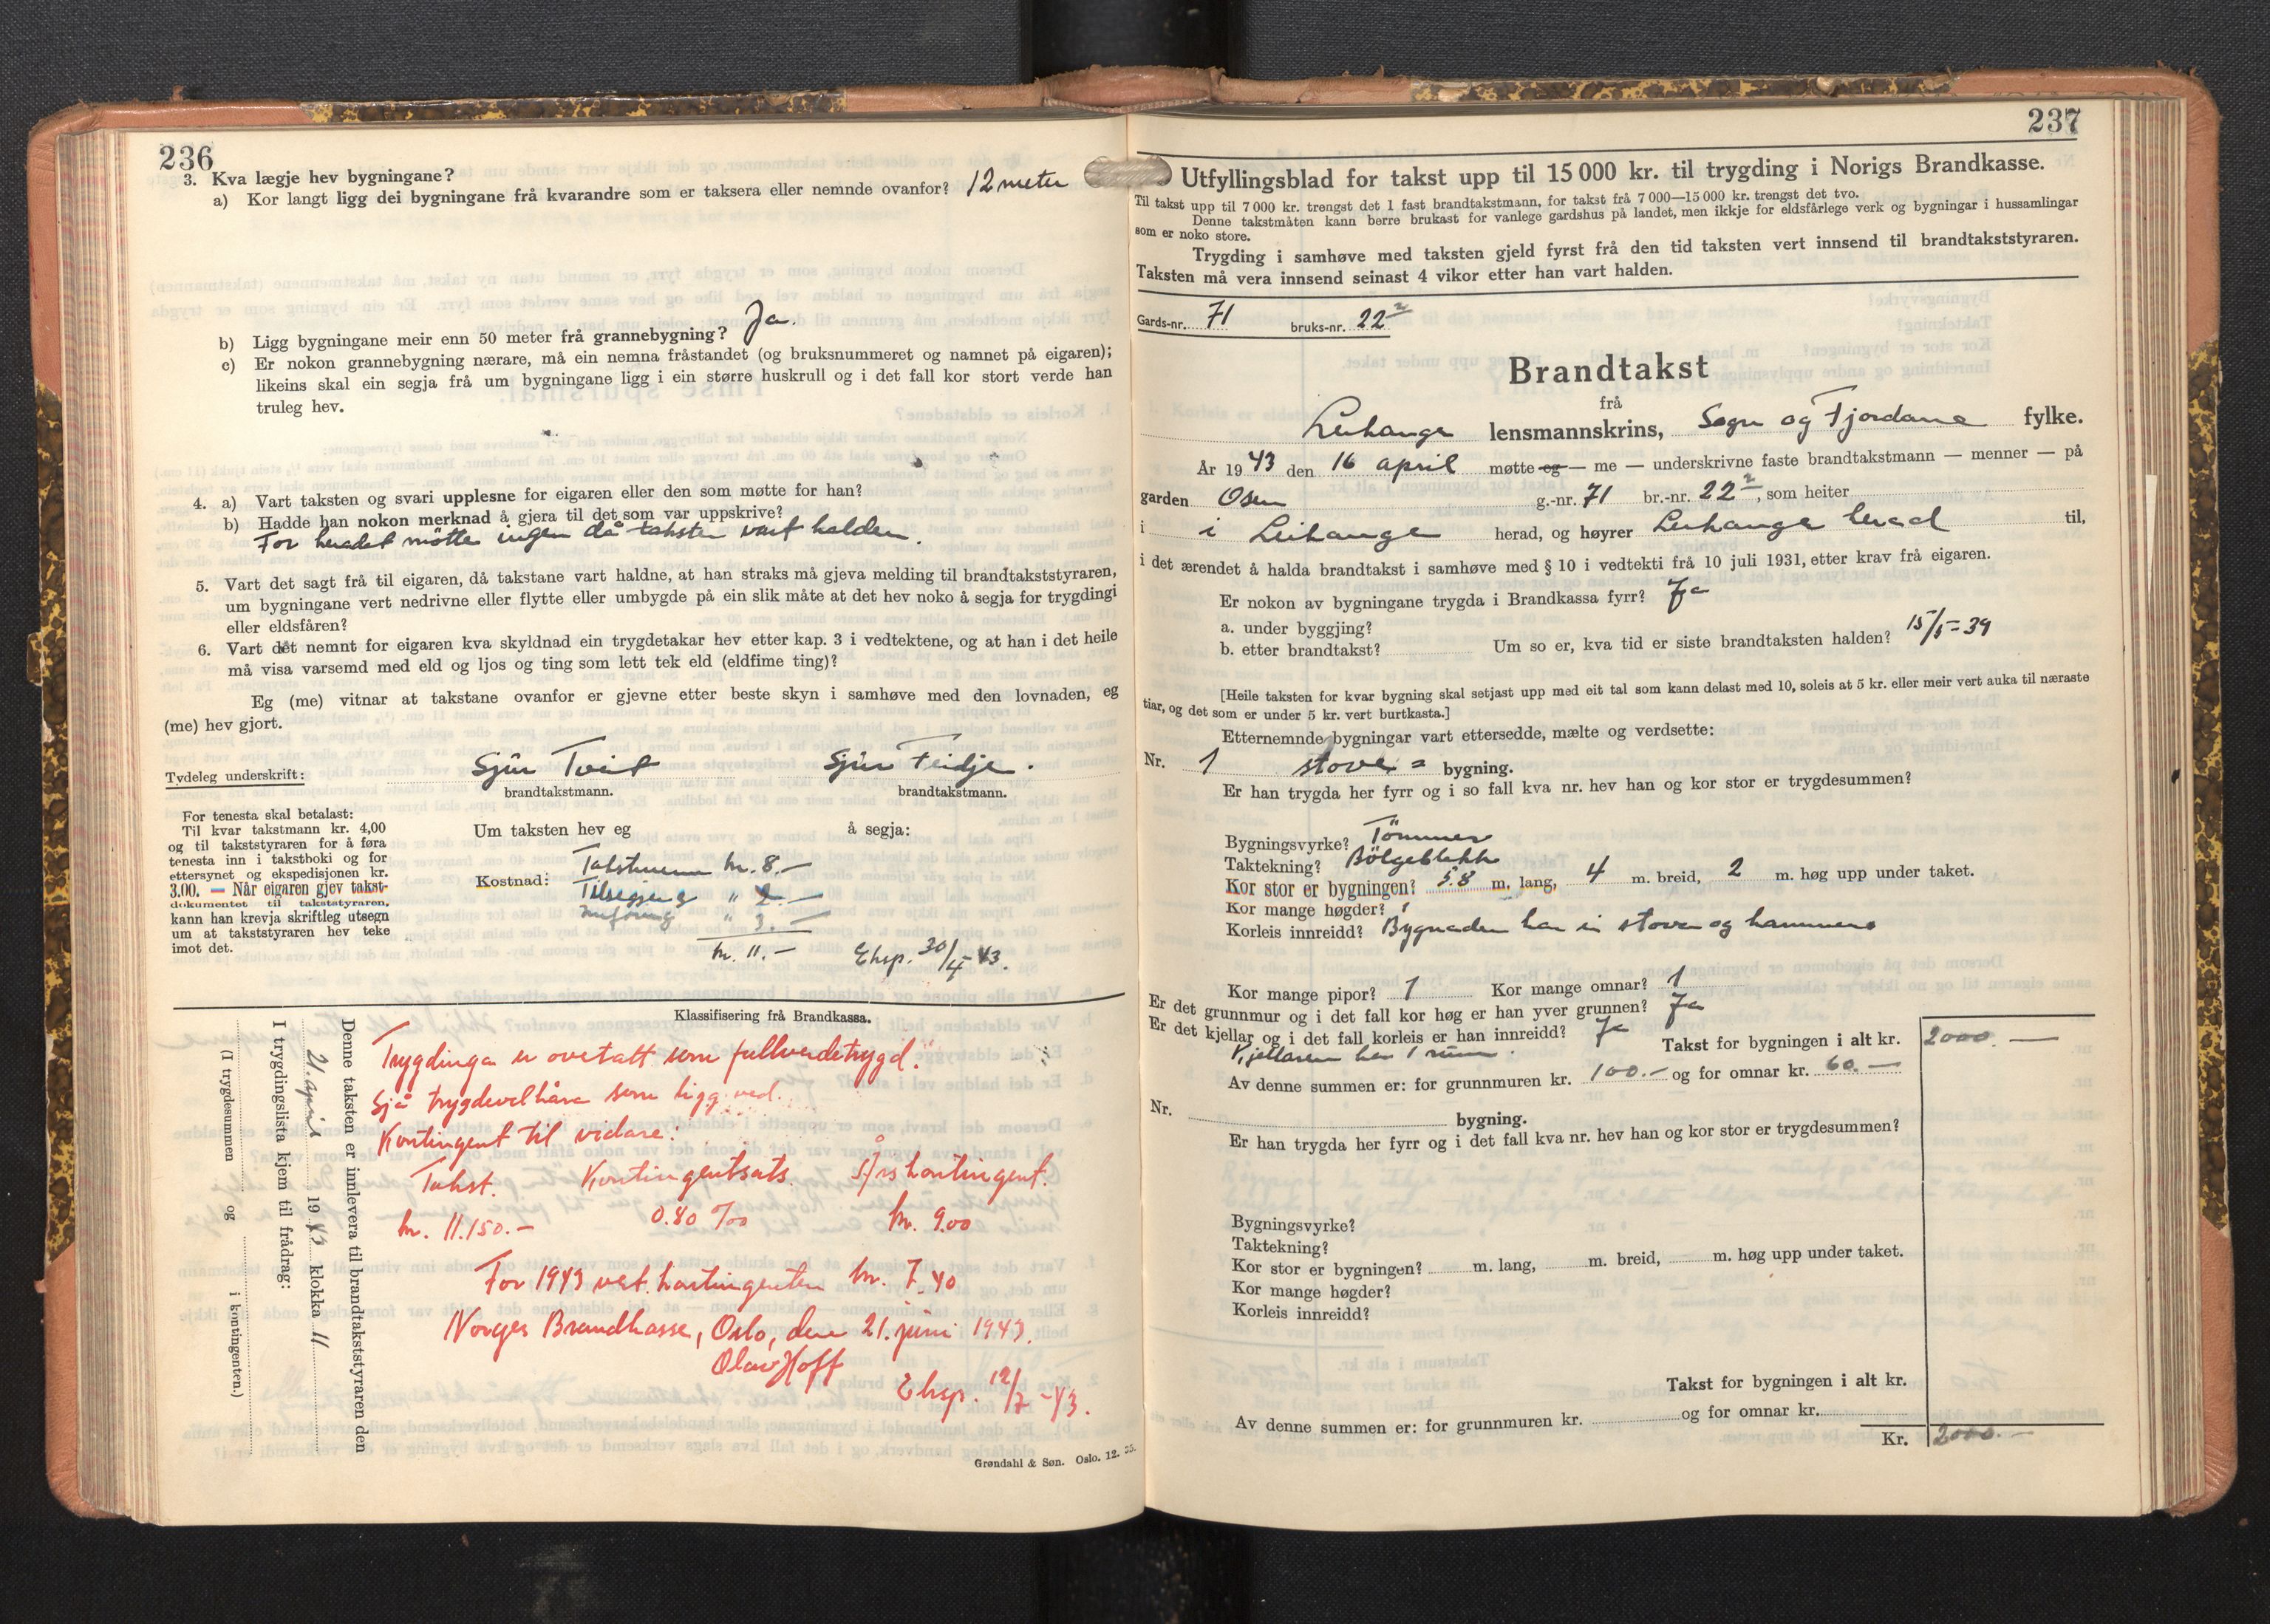 236
3. Kva lægje hev bygningane?
a) Kor langt ligg dei bygningane frå kvarandre som er taksera eller nemnde ovanfor? 12 meter
b) Ligg bygningane meir enn 50 meter frå grannebygning? Ja.
c) Er nokon grannebygning nærare, må ein nemna fråstandet (og bruksnummeret og namnet på eigaren);
likeins skal ein segja frå um bygningane ligg i ein større huskrull og i det fall kor stort verde han
truleg hev.
4. a) Vart taksten og svari upplesne for eigaren eller den som møtte for han?
b) Hadde han nokon merknad å gjera til det som var uppskrive?
For heradet møtte ingen då taksten vart halden.
5. Vart det sagt frå til eigaren, då takstane vart haldne, at han straks må gjeva melding til brandtakststyraren,
um bygningane vert nedrivne eller flytte eller umbygde på ein slik måte at det hev noko å segja for trygdingi
eller eldsfåren?
6. Vart det nemnt for eigaren kva skyldnad ein trygdetakar hev etter kap. 3 i vedtektene, og at han i det heile
må visa varsemd med eld og ljos og ting som lett tek eld (eldfime ting)?
Eg (me) vitnar at takstane ovanfor er gjevne etter beste skyn i samhøve med den lovnaden, eg
(me) hev gjort.
Tydeleg underskrift: Sjur Tveit Sjur Feidje.
brandtakstmann. brandtakstmann.
For tenesta skal betalast:
Til kvar takstmann kr. 4,00
og til takststyraren for å føra
tenesta inn i takstboki og for
ettersynet og ekspedisjonen kr.
3.00. — Når eigaren gjev takst-
dokumentet til takststyraren,
kann han krevja skriftleg utsegn
um at takststyraren hev teke
imot det.
Um taksten hev eg å segja:
Kostnad: Takstmenn kr. 8.—
Tilsegjing " 2.—
Innføring " 3.—
kr. 11.— Eksp. 30/4-43.
Klassifisering frå Brandkassa.
Denne taksten er innlevera til brandtakststyraren den
21. april 1943 klokka 11
I trygdingslista kjem til frådrag:
(I trygdesummen og i kontingenten.)
Trygdinga er overtatt som fullverdetrygd.
Sjå trygdevilkåra som ligg ved.
Kontingent til vidare:
Takst. Kontingentsats. Årskontingent.
kr. 11.150.— 0.80 ‰ kr. 9.00
For 1943 vert kontingenten kr. 7.40
Norges Brandkasse, Oslo, den 21. juni 1943.
Olav Hoff
Eksp. 12/7-43.
Grøndahl & Søn. Oslo. 12. 35.
237
Utfyllingsblad for takst upp til 15 000 kr. til trygding i Norigs Brandkasse.
Til takst upp til 7 000 kr. trengst det 1 fast brandtakstmann, for takst frå 7 000—15 000 kr. trengst det tvo.
Denne takstmåten kann berre brukast for vanlege gardshus på landet, men ikkje for eldsfårlege verk og bygningar i hussamlingar
som er noko store.
Trygding i samhøve med taksten gjeld fyrst frå den tid taksten vert innsend til brandtakststyraren.
Taksten må vera innsend seinast 4 vikor etter han vart halden.
Gards-nr. 71 bruks-nr. 22²
Brandtakst
frå
Leikanger lensmannskrins, Sogn og Fjordane fylke.
År 1943 den 16 april møtte eg — me — underskrivne faste brandtakstmann — menner — på
garden Osen g.-nr. 71 br.-nr. 22², som heiter
i i Leikanger herad, og høyrer Leikanger herad til,
i det ærendet å halda brandtakst i samhøve med § 10 i vedtekti frå 10 juli 1931, etter krav frå eigaren.
Er nokon av bygningane trygda i Brandkassa fyrr? Ja
a. under byggjing?
b. etter brandtakst? Um so er, kva tid er siste brandtaksten halden? 15/5-39
[Heile taksten for kvar bygning skal setjast upp med eit tal som kann delast med 10, soleis at 5 kr. eller meir vert auka til næraste
tiar, og det som er under 5 kr. vert burtkasta.]
Etternemnde bygningar vart ettersedde, mælte og verdsette:
Nr. 1 stove = bygning.
Er han trygda her fyrr og i so fall kva nr. hev han og kor stor er trygdesummen?
Bygningsvyrke? Tömmer
Taktekning? Bölgeblekk
Kor stor er bygningen? 5.8 m. lang, 4 m. breid, 2 m. høg upp under taket.
Kor mange høgder? 1
Korleis innreidd? Bygnaden har ei stova og kammers
Kor mange pipor? 1 Kor mange omnar? 1
Er det grunnmur og i det fall kor høg er han yver grunnen? Ja
Er det kjellar og i det fall korleis er han innreidd? Ja
Kjellaren har 1 rum. Takst for bygningen i alt kr. 2000.—
Av denne summen er: for grunnmuren kr. 100.— og for omnar kr. 60.—
Nr. bygning.
Er han trygda her fyrr og i det fall kva nr. hev han og kor stor er trygdesummen?
Bygningsvyrke?
Taktekning?
Kor stor er bygningen? m. lang, m. breid, m. høg upp under taket.
Kor mange høgder?
Korleis innreidd?
Takst for bygningen i alt kr.
Av denne summen er: for grunnmuren kr. og for omnar kr.
Kr. 2000.—